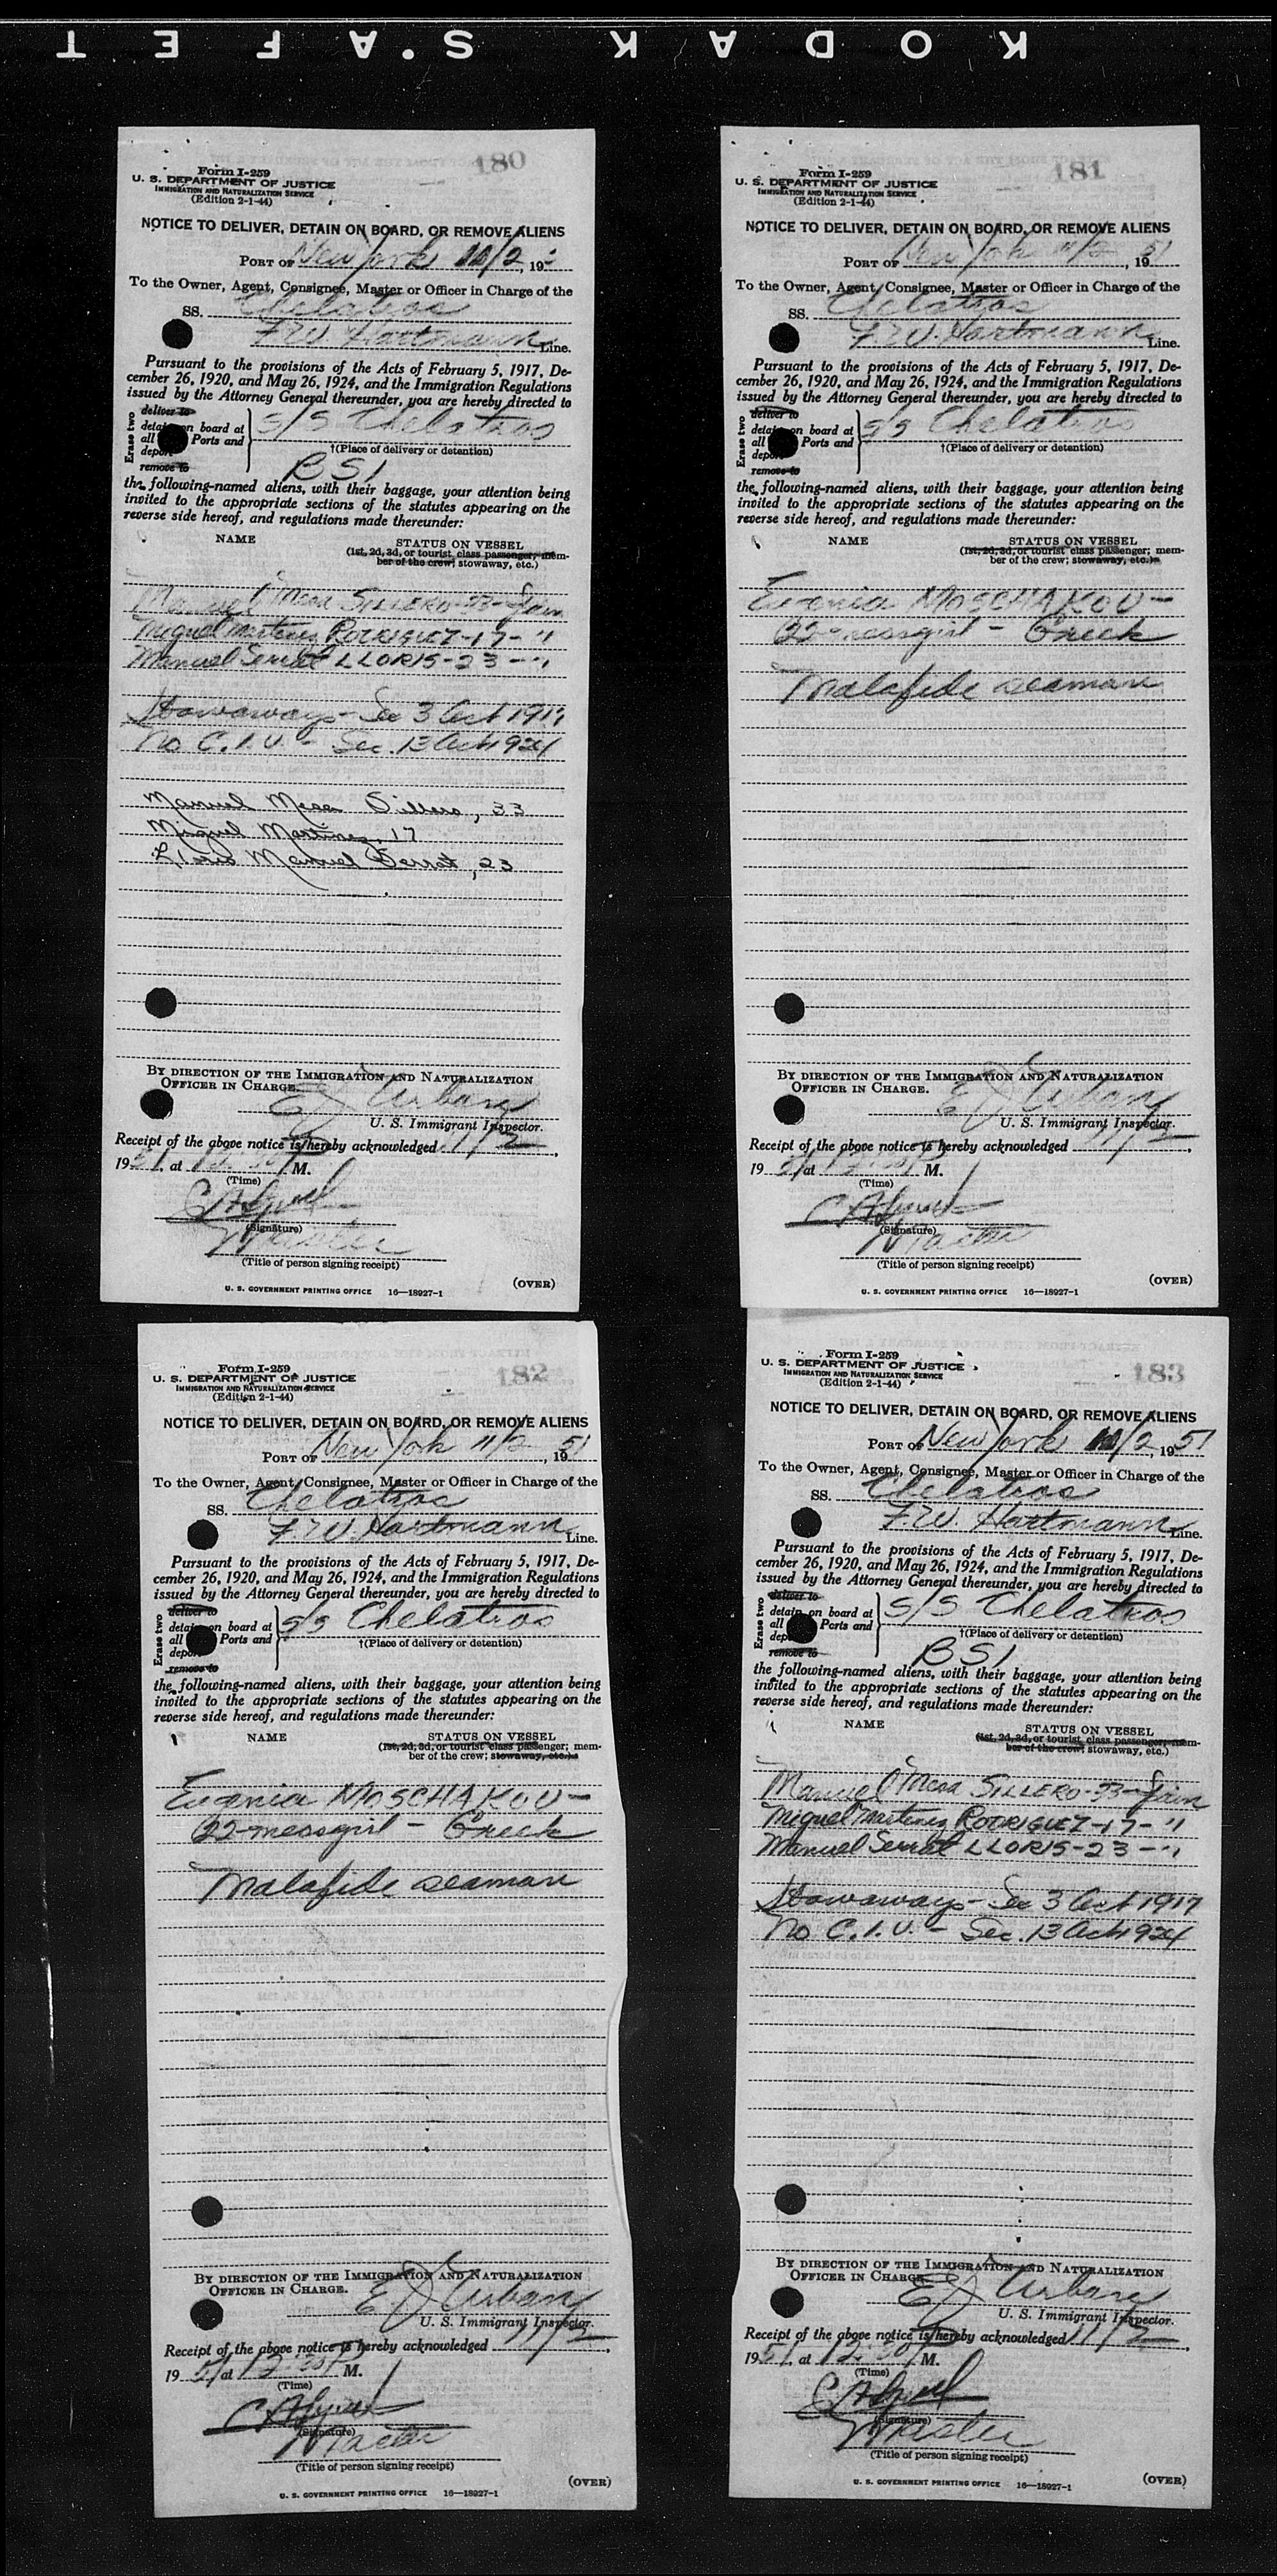 KODAK SAFET
180
Form I-259
U. S. DEPARTMENT OF JUSTICE
IMMIGRATION AND NATURALIZATION SERVICE
(Edition 2-1-44)
NOTICE TO DELIVER, DETAIN ON BOARD, OR REMOVE ALIENS
PORT OF New York 11/2, 19
To the Owner, Agent, Consignee, Master or Officer in Charge of the
SS. Chelatros
F.W. Hartmann Line.
Pursuant to the provisions of the Acts of February 5, 1917, De-
cember 26, 1920, and May 26, 1924, and the Immigration Regulations
issued by the Attorney General thereunder, you are hereby directed to
Erase two
deliver to
detain on board at
all Ports and
deport
remove to
S/S Chelatros
†(Place of delivery or detention)
BSI
the following-named aliens, with their baggage, your attention being
invited to the appropriate sections of the statutes appearing on the
reverse side hereof, and regulations made thereunder:
NAME
STATUS ON VESSEL
(1st, 2d, 3d, or tourist class passenger; mem-
ber of the crew; stowaway, etc.)
Manuel Mesa SILLERO-33-
Miguel Martinez RODRIGUEZ-17- "
Manuel Serrat LLORIS-23- "
Stowaways - Sec 3 Act 1917
No C.I.V. - Sec. 13 Act 1924
Manuel Mesa Sillero, 33
Miguel Martinez, 17
Lloris Manuel Serrat, 23
BY DIRECTION OF THE IMMIGRATION AND NATURALIZATION
OFFICER IN CHARGE.
E J Urban
U. S. Immigrant Inspector.
Receipt of the above notice is hereby acknowledged 11/2,
1951, at 12:30 P M.
(Time)
(Signature)
Master
(Title of person signing receipt)
(OVER)
U. S. GOVERNMENT PRINTING OFFICE 16—18927-1
181
Form I-259
U. S. DEPARTMENT OF JUSTICE
IMMIGRATION AND NATURALIZATION SERVICE
(Edition 2-1-44)
NOTICE TO DELIVER, DETAIN ON BOARD, OR REMOVE ALIENS
PORT OF New York 11/2, 1951
To the Owner, Agent, Consignee, Master or Officer in Charge of the
SS. Chelatros
F.W. Hartmann Line.
Pursuant to the provisions of the Acts of February 5, 1917, De-
cember 26, 1920, and May 26, 1924, and the Immigration Regulations
issued by the Attorney General thereunder, you are hereby directed to
Erase two
deliver to
detain on board at
all Ports and
deport
remove to
S/S Chelatros
†(Place of delivery or detention)
the following-named aliens, with their baggage, your attention being
invited to the appropriate sections of the statutes appearing on the
reverse side hereof, and regulations made thereunder:
NAME
STATUS ON VESSEL
(1st, 2d, 3d, or tourist class passenger; mem-
ber of the crew; stowaway, etc.)
Evgenia MOSCHAKOU -
22-messgirl - Greek
Malafide seaman
BY DIRECTION OF THE IMMIGRATION AND NATURALIZATION
OFFICER IN CHARGE.
E J Urban
U. S. Immigrant Inspector.
Receipt of the above notice is hereby acknowledged 11/2,
1951 at 12:30 P M.
(Time)
(Signature)
Master
(Title of person signing receipt)
(OVER)
U. S. GOVERNMENT PRINTING OFFICE 16—18927-1
182
Form I-259
U. S. DEPARTMENT OF JUSTICE
IMMIGRATION AND NATURALIZATION SERVICE
(Edition 2-1-44)
NOTICE TO DELIVER, DETAIN ON BOARD, OR REMOVE ALIENS
PORT OF New York 11/2, 1951
To the Owner, Agent, Consignee, Master or Officer in Charge of the
SS. Chelatros
F.W. Hartmann Line.
Pursuant to the provisions of the Acts of February 5, 1917, De-
cember 26, 1920, and May 26, 1924, and the Immigration Regulations
issued by the Attorney General thereunder, you are hereby directed to
Erase two
deliver to
detain on board at
all Ports and
deport
remove to
S/S Chelatros
†(Place of delivery or detention)
the following-named aliens, with their baggage, your attention being
invited to the appropriate sections of the statutes appearing on the
reverse side hereof, and regulations made thereunder:
NAME
STATUS ON VESSEL
(1st, 2d, 3d, or tourist class passenger; mem-
ber of the crew; stowaway, etc.)
Evgenia MOSCHAKOU -
22-messgirl - Greek
Malafide seaman
BY DIRECTION OF THE IMMIGRATION AND NATURALIZATION
OFFICER IN CHARGE.
E J Urban
U. S. Immigrant Inspector.
Receipt of the above notice is hereby acknowledged 11/2,
1951 at 12:30 P M.
(Time)
(Signature)
Master
(Title of person signing receipt)
(OVER)
U. S. GOVERNMENT PRINTING OFFICE 16—18927-1
183
Form I-259
U. S. DEPARTMENT OF JUSTICE
IMMIGRATION AND NATURALIZATION SERVICE
(Edition 2-1-44)
NOTICE TO DELIVER, DETAIN ON BOARD, OR REMOVE ALIENS
PORT OF New York 11/2, 1951
To the Owner, Agent, Consignee, Master or Officer in Charge of the
SS. Chelatros
F.W. Hartmann Line.
Pursuant to the provisions of the Acts of February 5, 1917, De-
cember 26, 1920, and May 26, 1924, and the Immigration Regulations
issued by the Attorney General thereunder, you are hereby directed to
Erase two
deliver to
detain on board at
all Ports and
deport
remove to
S/S Chelatros
†(Place of delivery or detention)
BSI
the following-named aliens, with their baggage, your attention being
invited to the appropriate sections of the statutes appearing on the
reverse side hereof, and regulations made thereunder:
NAME
STATUS ON VESSEL
(1st, 2d, 3d, or tourist class passenger; mem-
ber of the crew; stowaway, etc.)
Manuel Mesa SILLERO-33-
Miguel Martinez RODRIGUEZ-17- "
Manuel Serrat LLORIS-23- "
Stowaways - Sec 3 Act 1917
No C.I.V. - Sec. 13 Act 1924
BY DIRECTION OF THE IMMIGRATION AND NATURALIZATION
OFFICER IN CHARGE.
E J Urban
U. S. Immigrant Inspector.
Receipt of the above notice is hereby acknowledged 11/2,
1951, at 12:30 P M.
(Time)
(Signature)
Master
(Title of person signing receipt)
(OVER)
U. S. GOVERNMENT PRINTING OFFICE 16—18927-1